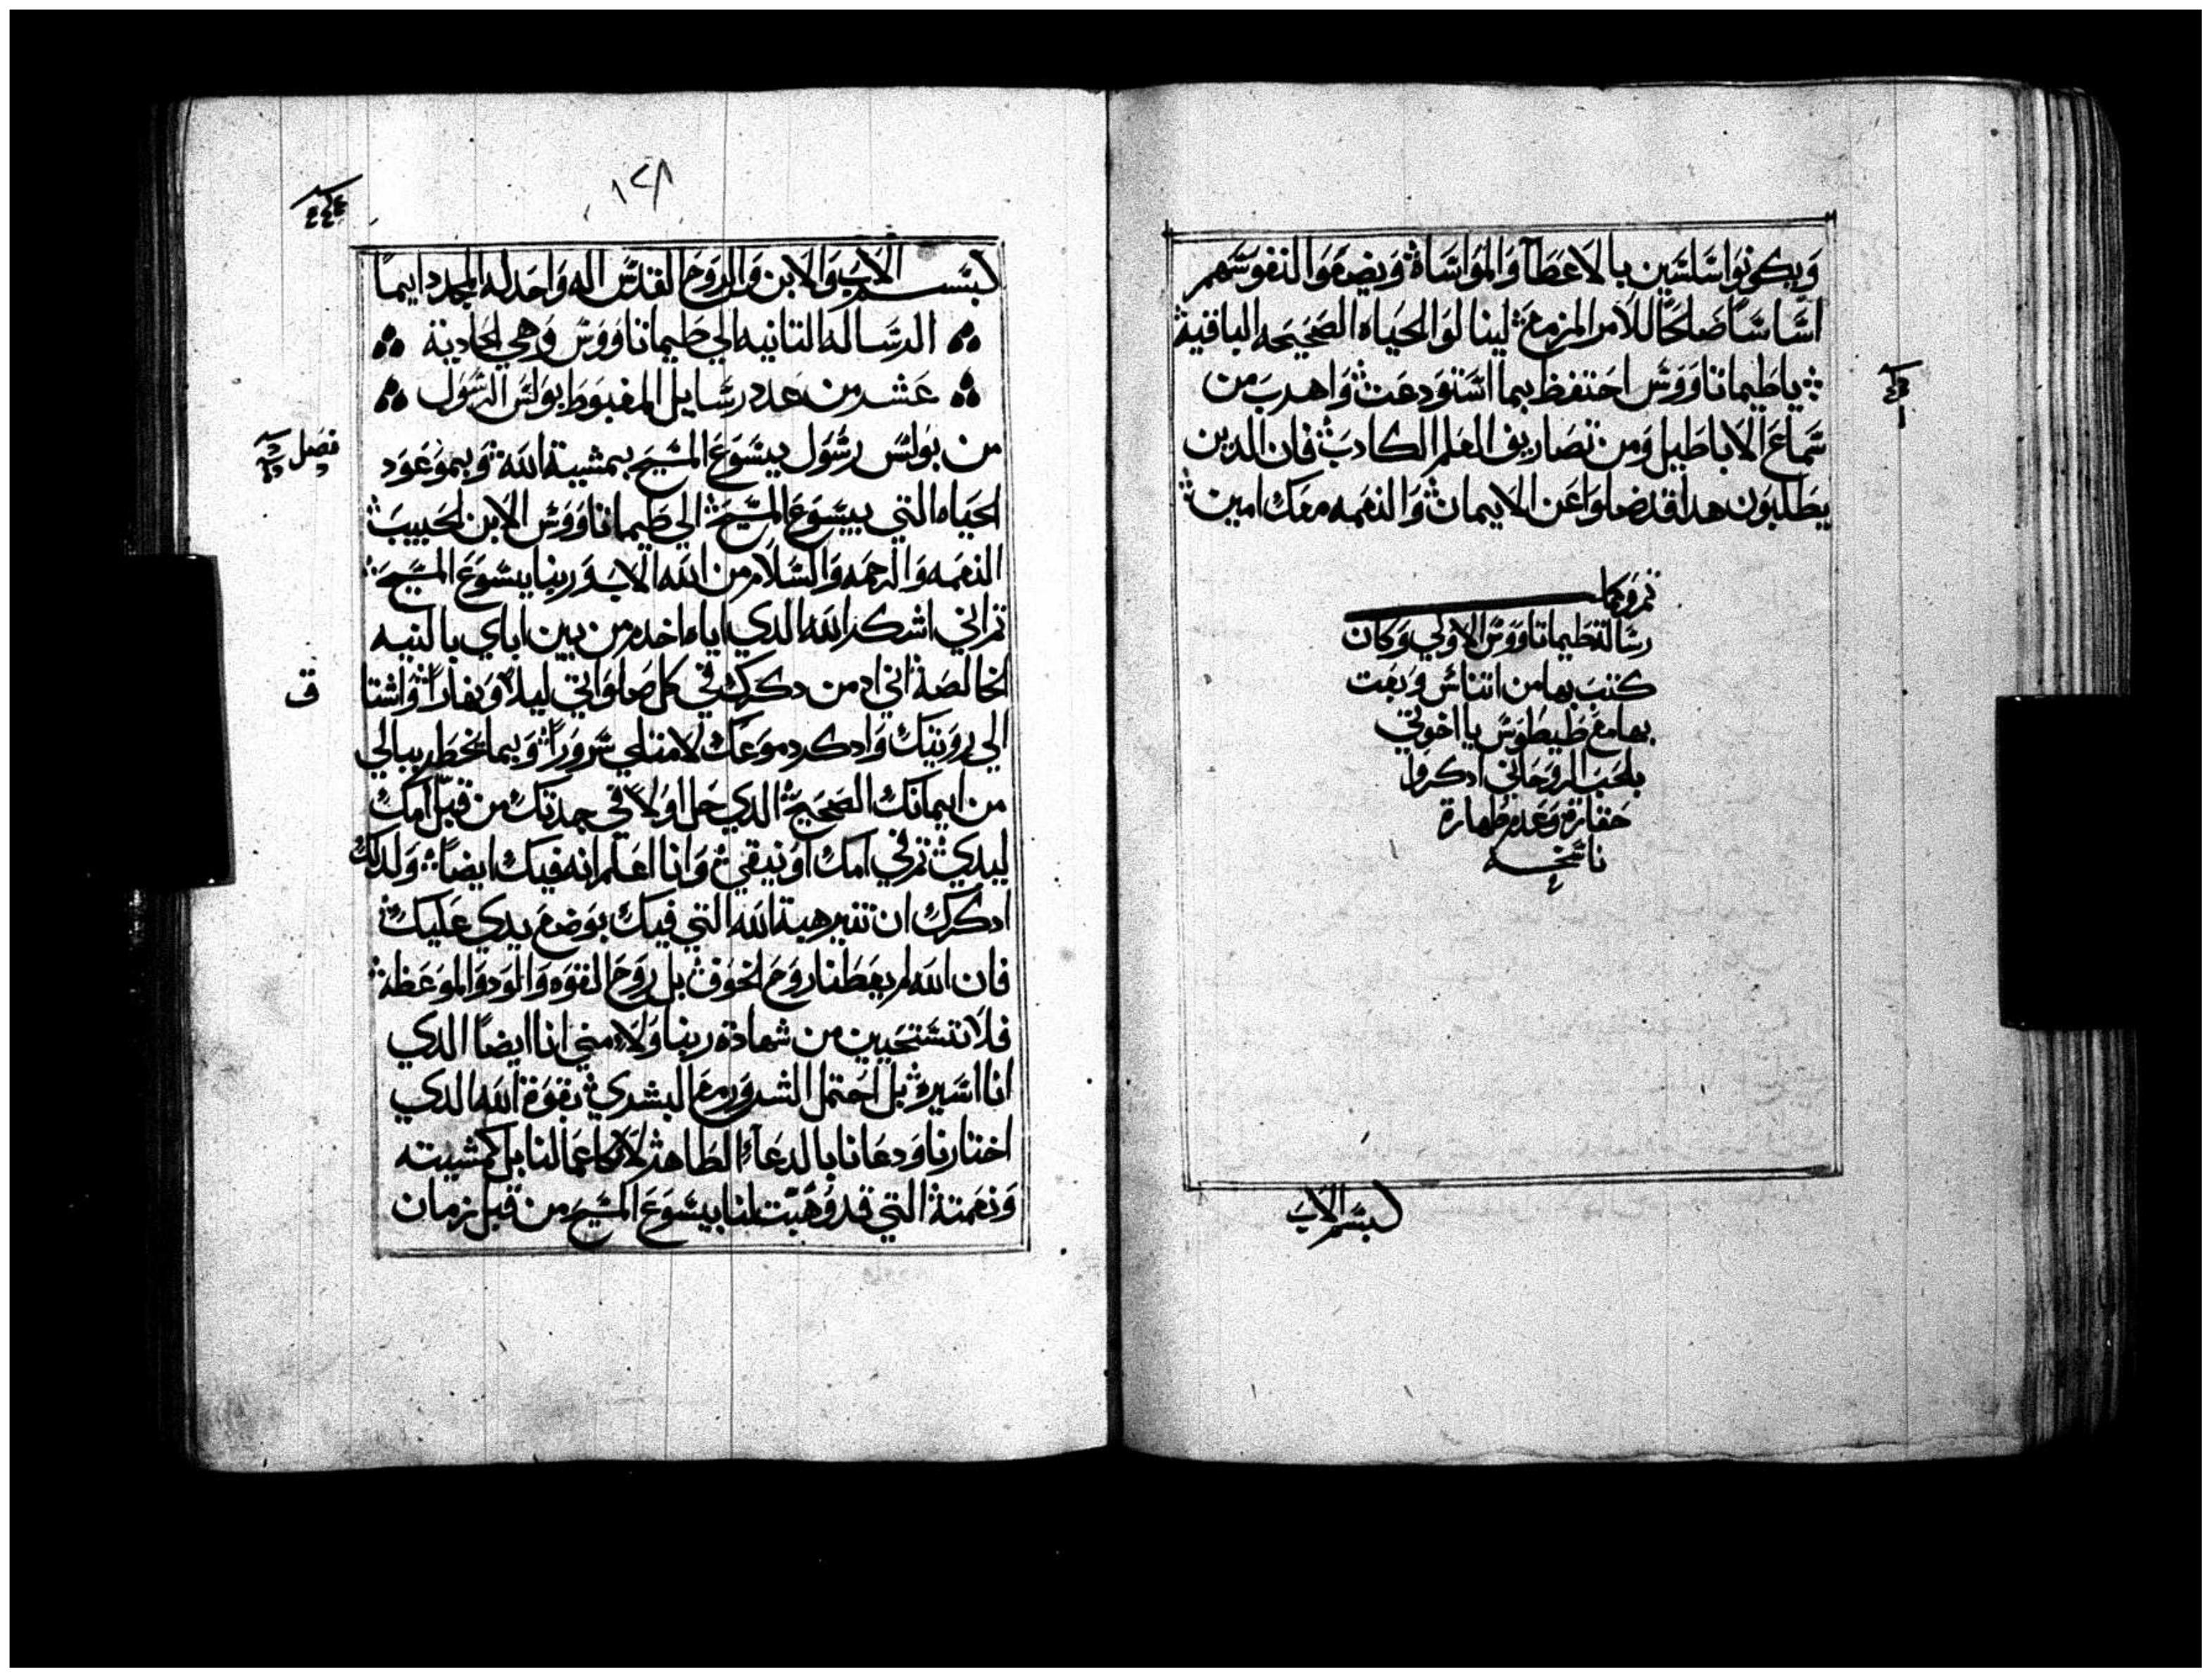 ويكونوا سلسين بالاعطآ والمواساة ويضعوا لنفوسهم
اساسًا صالحًا للامر المزمع لينالوا الحياه الصحيحه الباقية
ياطيماتاووس احتفظ بما استودعت واهرب من
سماع الاباطيل ومن تصاريف العلم الكادب فان الدين
يطلبون هدا قد ضلوا عن الايمان والنعمه معك امين
تم وكمل
رسالة طيماتاووس الاولي وكان
كتب بها من اتناس وبعت
بها مع طيطوس يا اخوتي
بلحب الروحاني ادكروا
حقارة وعدم طهارة
ناسخه
لبسم الاب
١٢٨
لبسم الاب والابن والروح القدس اله واحد له المجد دايمًا
الرسالة التانيه الي طيماتاووس وهي الحادية
عشر من عدد رسايل المغبوط بولس الرسول
فصل
من بولس رسول يسوع المسيح بمشية الله وبموعود
الحياه التي بيسوع المسيح الي طيماتاووس الابن الحبيب
النعمه والرحمه والسلام من الله الاب وربنا يسوع المسيح
تم اني اشكر الله الدي اياه اخدم من بين اباي بالنيه
ق
الخالصة اني ادمن دكرك في كل صلواتي ليلا ونهارًا واشتا
الي رويتك وادكر دموعك لامتلي سرورًا وبما يخطر ببالي
من ايمانك الصحيح الدي حل اولاً في جدتك من قبل امك
ليدي تم في امك اونيقي وانا اعلم انه فيك ايضًا ولدلك
ادكرك ان تتير هبة الله التي فيك بوضع يدي عليك
فان الله لم يعطنا روح الخوف بل روح القوه والود والموعظة
فلا تستحيين من شهادة ربنا ولا مني انا ايضًا الدي
انا اسيره بل احتمل الشرور مع البشري بقوة الله الدي
اختارنا ودعانا بالدعاء الطاهر لا كاعمالنا بل كمشيته
ونعمتة التي قد وهبت لنا بيسوع المسيح من قبل زمان